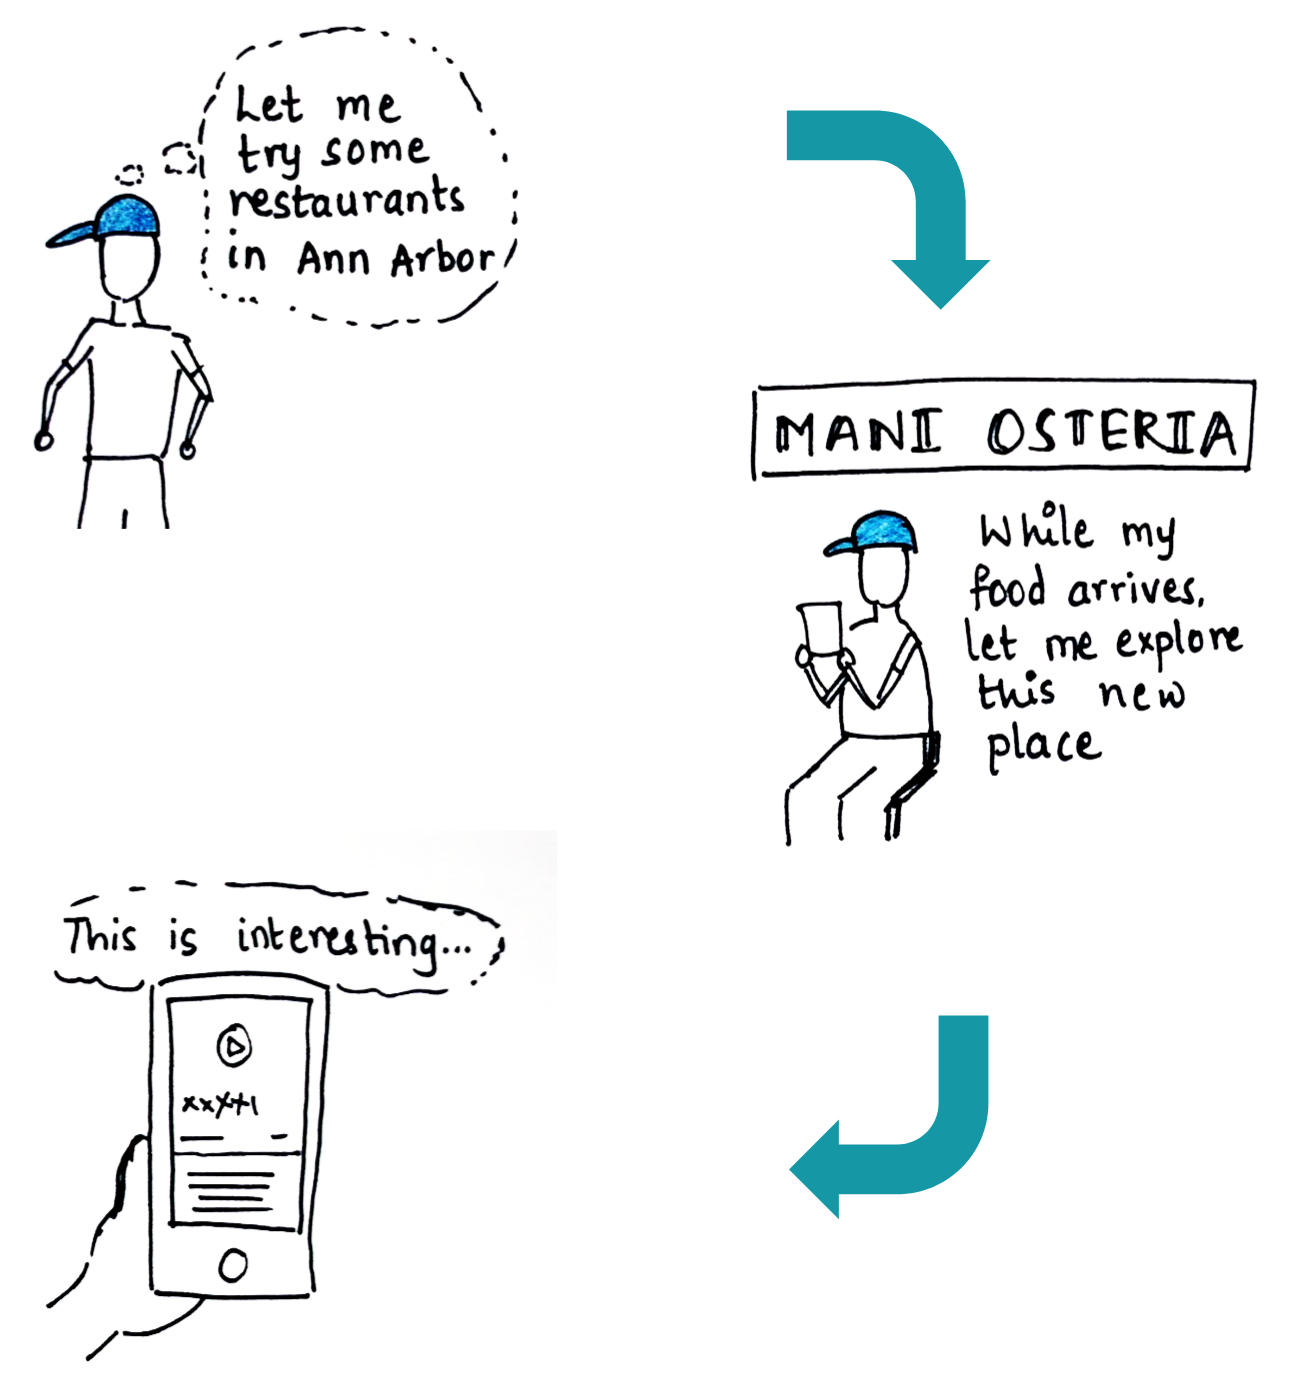 Let me
try some
restaurants
in Ann Arbor
MANI OSTERIA
While my
food arrives,
let me explore
this new
place
This is interesting...